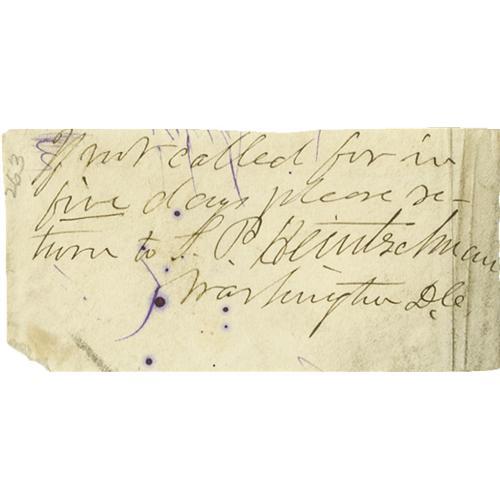 If not called for in
five days please re-
turn to S. P. Heintzelman
Washington D.C.
263